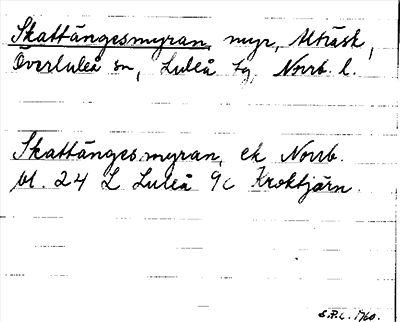 Skattängesmyran, myr, Alträsk,
Överluleå sn, Luleå tg, Norrb. l.
Skattängesmyran, ek Norrb.
bl. 24 L Luleå 9c Kroktjärn.
S.P.L. 1960.